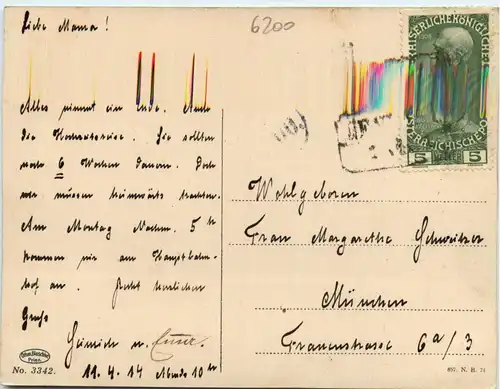 Liebe Mama!
6200
Alles nimmt ein Ende. Auch
die Hochzeitsreise. Sie sollten
noch 6 Wochen dauern. Doch
wir müssen heimwärts trachten.
Am Montag Nachm. 5 h
kommen wir am Hauptbahn-
hof an. Recht herzlichen
Gruß
Heinrich u.
11.4.14 Abends 10 h
KAISERLICHE KÖNIGLICHE
5 HELLER 5
Wohlgeboren
Frau Margarethe Schweitzer
München
Frauenstrasse 6a/3
No. 3342.
697. N. B. 71